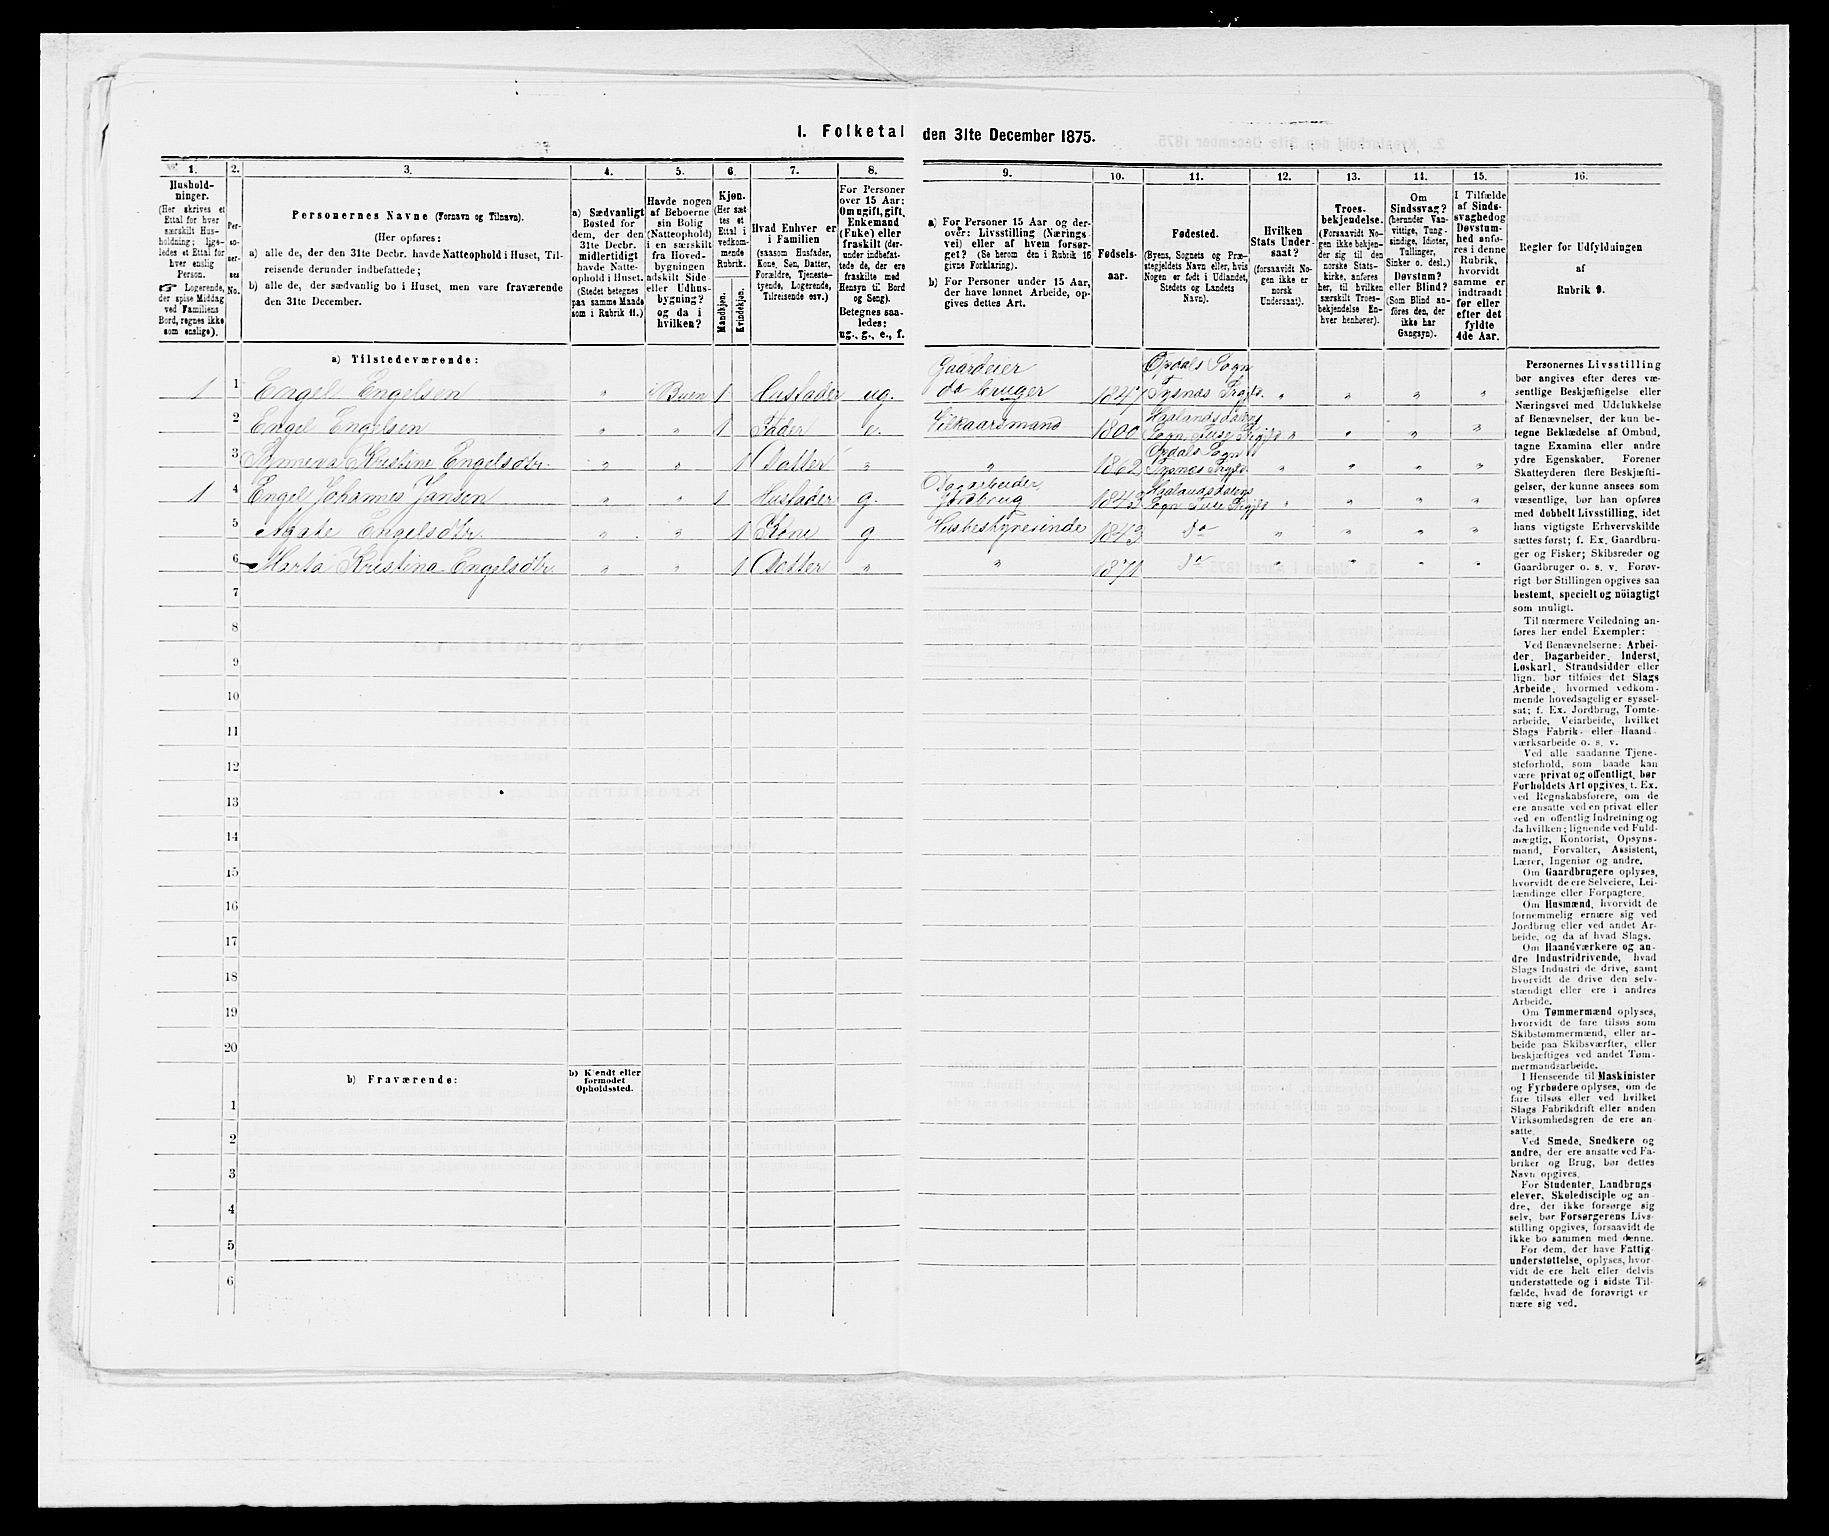 I. Folketal den 31te December 1875.
1. 2. 3. 4. 5. 6. 7. 8. 9. 10. 11. 12. 13. 14. 15. 16.
Hushold-
ninger.
(Her skrives et
Ettal for hver
særskilt Hus-
holdning; lige-
ledes et Ettal for
hver enslig
Person.
☞ Logerende,
der spise Middag
ved Familiens
Bord, regnes ikke
som enslige).
Per-
so-
ner-
nes
No.
Personernes Navne (Fornavn og Tilnavn).
(Her opføres:
a) alle de, der den 31te Decbr. havde Natteophold i Huset, Til-
reisende derunder indbefattede;
b) alle de, der sædvanlig bo i Huset, men vare fraværende
den 31te December.
a) Sædvanligt
Bosted for
dem, der den
31te Decbr.
midlertidigt
havde Natte-
ophold i Huset.
(Stedet betegnes
paa samme Maade
som i Rubrik 11.)
Havde nogen
af Beboerne
sin Bolig
(Natteophold)
i en særskilt
fra Hoved-
bygningen
adskilt Side-
eller Udhus-
bygning?
og da i
hvilken?
Kjøn.
(Her sæt-
tes et
Ettal i
vedkom-
mende
Rubrik.
Mandkjøn.
Kvindekjøn.
Hvad Enhver er
i Familien
(saasom Husfader,
Kone, Søn, Datter,
Forældre, Tjeneste-
tyende, Logerende,
Tilreisende osv.)
For Personer
over 15 Aar:
Om ugift, gift,
Enkemand
(Enke) eller
fraskilt (der-
under indbefat-
tede de, der ere
fraskilte med
Hensyn til Bord
og Seng).
Betegnes saa-
ledes:
ug., g., e., f.
a) For Personer 15 Aar og der-
over: Livsstilling (Nærings-
vei) eller af hvem forsør-
get? (Se herom den i Rubrik 16
givne Forklaring).
b) For Personer under 15 Aar,
der have lønnet Arbeide, op-
gives dettes Art.
Fødsels-
aar.
Fødested.
(Byens, Sognets og Præ-
stegjeldets Navn eller, hvis
Nogen er født i Udlandet,
Stedets og Landets
Navn).
Hvilken
Stats Under-
saat?
(forsaavidt No-
gen ikke er
norsk
Undersaat).
Troes-
bekjendelse.
(Forsaavidt No-
gen ikke bekjen-
der sig til den
norske Stats-
kirke, anføres
her, til hvilken
særskilt Troes-
bekjendelse En-
hver henhører).
Om
Sindssvag?
(herunder Van-
vittige, Tung-
sindige, Idioter,
Tullinger,
Sinker o. desl.)
Døvstum?
eller Blind?
(Som Blind an-
føres den, der
ikke har
Gangsyn).
I Tilfælde
af Sinds-
svaghed og
Døvstum-
hed anfø-
res i denne
Rubrik,
hvorvidt
samme er
indtraadt
før eller
efter det
fyldte
4de Aar.
Regler for Udfyldningen
af
Rubrik 9.
a) Tilstedeværende:
1 1 Engel Engelsen " i Buen 1 Husfader ug. Gaardeier da bruger 1847 Opdals Sogn Tysnæs Prgjld. " " " "
2 Engel Engelsen " " 1 Fader e. Vilkaarsmand 1800 Haalandsdalens Sogn Fuse Prgjld " " " "
3 Synneva Kristine Engelsdtr. " " 1 Datter " " 1862 Opdals Sogn Tysnæs Prgjld. " " " "
1 4 Engel Johannes Jansen " " 1 Husfader g. Dagarbeider Jordbrug 1843 Haalandsdalens Sogn Fuse Prgjld " " " "
5 Agate Engelsdtr. " " 1 Kone g Husbestyrerinde 1843 do " " " "
6 Marta Kristina Engelsdtr. " " 1 Datter " " 1871 do " " " "
7
8
9
10
11
12
13
14
15
16
17
18
19
20
b) Fraværende:
b) Kjendt eller
formodet
Opholdssted.
1
2
3
4
5
6
Personernes Livsstilling
bør angives efter deres væ-
sentlige Beskjæftigelse eller
Næringsvei med Udelukkelse
af Benævnelser, der kun be-
tegne Beklædelse af Ombud,
tagne Examina eller andre
ydre Egenskaber. Forener
Skatteyderen flere Beskjæfti-
gelser, der kunne ansees som
væsentlige, bør han opføres
med dobbelt Livsstilling, idet
hans vigtigste Erhvervskilde
sættes først; f. Ex. Gaardbru-
ger og Fisker; Skibsreder og
Gaardbruger o. s. v. Forøv-
rigt bør Stillingen opgives saa
bestemt, specielt og nöiagtigt
som muligt.
Til nærmere Veiledning an-
føres her endel Exempler:
Ved Benævnelserne: Arbei-
der, Dagarbeider, Inderst,
Løskarl, Strandsidder eller
lign. bør tilføies det Slags
Arbeide, hvormed vedkom-
mende hovedsagelig er syssel-
sat; f. Ex. Jordbrug, Tomte-
arbeide, Veiarbeide, hvilket
Slags Fabrik- eller Haand-
værksarbeide o. s. v.
Ved alle saadanne Tjene-
steforhold, som baade kan
være privat og offentligt, bør
Forholdets Art opgives, t. Ex.
ved Regnskabsførere, om de
ere ansatte ved en privat eller
ved en offentlig Indretning og
da hvilken; lignende ved Fuld-
mægtig, Kontorist, Opsyns-
mand, Forvalter, Assistent,
Lærer, Ingeniør og andre.
Om Gaardbrugere oplyses,
hvorvidt de ere Selveiere, Lei-
lændinge eller Forpagtere.
Om Husmænd, hvorvidt de
fornemmelig ernære sig ved
Jordbrug eller ved andet Ar-
beide, og da af hvad Slags.
Om Haandværkere og an-
dre Industridrivende, hvad
Slags Industri de drive, samt
hvorvidt de drive den selv-
stændigt eller ere i andres
Arbeide.
Om Tømmermænd oplyses,
hvorvidt de fare tilsøs som
Skibstømmermænd, eller ar-
beide paa Skibsværfter, eller
beskjæftiges ved andet Tøm-
mermandsarbeide.
I Henseende til Maskinister
og Fyrbødere oplyses, om de
fare tilsøs eller ved hvilket
Slags Fabrikdrift eller anden
Virksomhedsgren de ere an-
satte.
Ved Smede, Snedkere og
andre, der ere ansatte ved Fa-
briker og Brug, bør dettes
Navn opgives.
For Studenter, Landbrugs-
elever, Skoledisciple og an-
dre, der ikke forsørge sig
selv, bør Forsørgerens Livs-
stilling opgives, forsaavidt de
ikke bo sammen med denne.
For dem, der have Fattig-
understøttelse, oplyses, hvor-
vidt de ere helt eller delvis
understøttede og i sidste Til-
fælde, hvad de forøvrigt er-
nære sig ved.